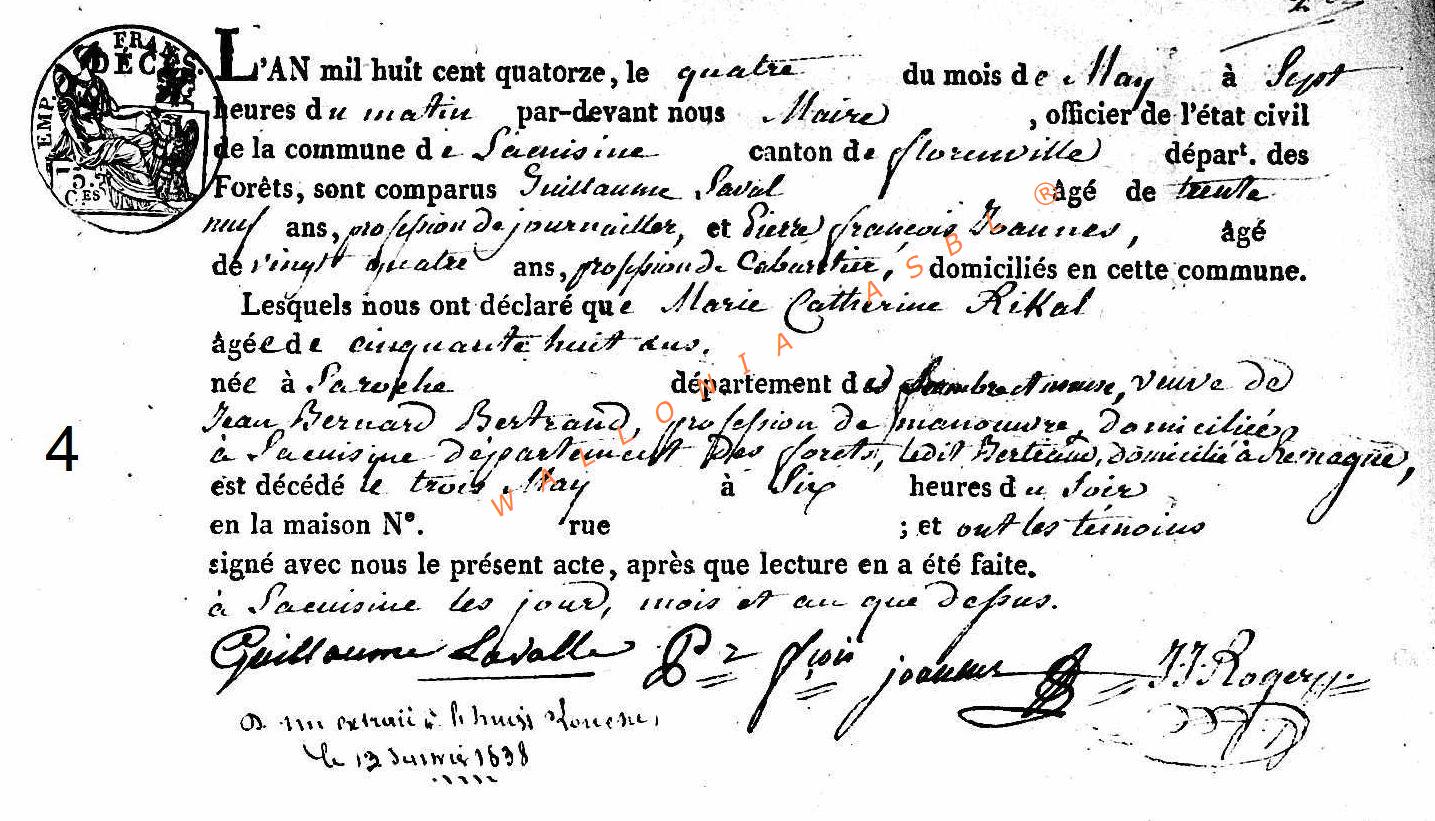 FRAN
DÉCÈS.
EMP.
CES
L'AN mil huit cent quatorze, le quatre du mois de May à Sept
heures du matin par-devant nous Maire , officier de l'état civil
de la commune de Lacuisine canton de florenville départ. des
Forêts, sont comparus Guillaume Laval âgé de trente
neuf ans, profession de journailler, et Pierre françois Joannes, âgé
de vingt quatre ans, profession de Cabaretier, domiciliés en cette commune.
Lesquels nous ont déclaré que Marie Catherine Rikal
âgée de cinquante huit ans.
née à Laroche département de Sambre et meuse, veuve de
Jean Bernard Bertrand, profession de manouvre, domiciliée
à Lacuisine département des forets, ledit Bertrand, domicilié à Remagne,
est décédé le trois May à Six heures du Soir
en la maison N°. rue ; et ont les témoins
signé avec nous le présent acte, après que lecture en a été faite.
à Lacuisine les jour, mois et an que dessus.
Guillaume Lavalle Pr fçois joannes J.J. Rogery
un extrait à
le 13 Janvier 1838
4
WALLONIA ASBL ®